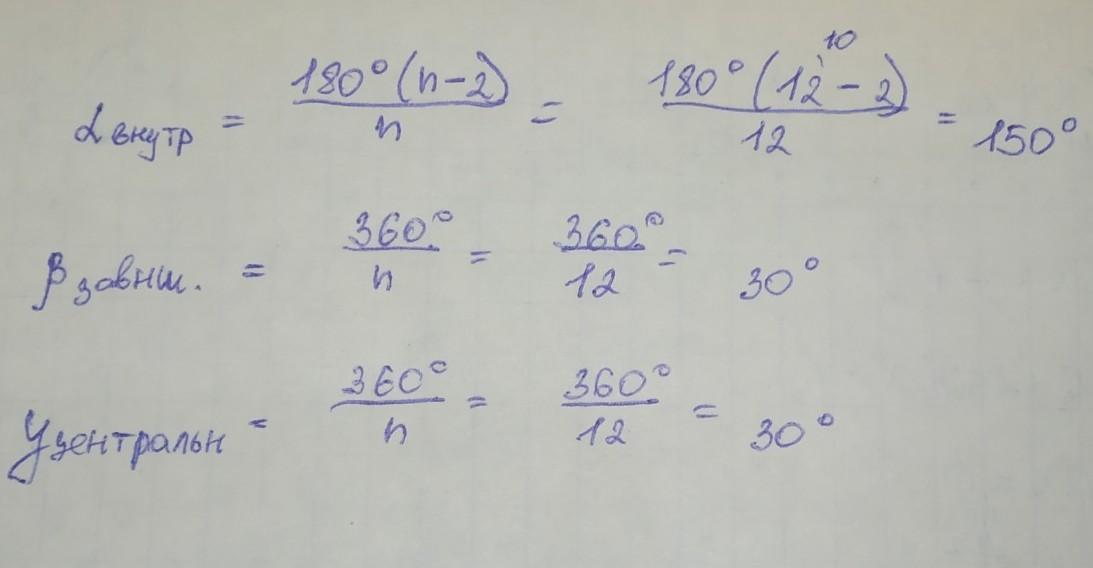 α внутр = 180°(n-2)/n = 180°(12-2)/12 = 150°
10
β завнш. = 360°/n = 360°/12 = 30°
γ центральн = 360°/n = 360°/12 = 30°